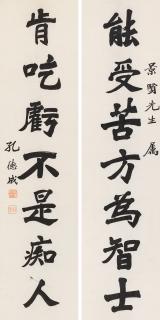 能受苦方為智士
景賢先生 屬
肯吃虧不是痴人
孔德成